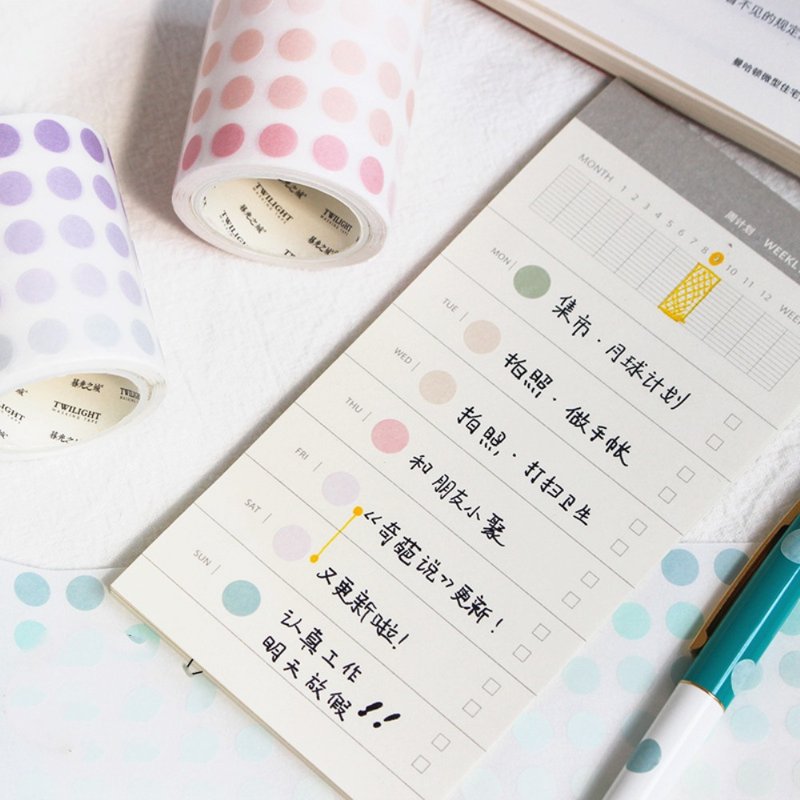 曼哈顿微型住宅
周计划 WEEKLY
MONTH 1 2 3 4 5 6 7 8 9 10 11 12
MON 集市·月球计划
TUE 拍照·做手帐
WED 拍照·打扫卫生
THU 和朋友小聚
FRI 《奇葩说》更新!
SAT 又更新啦!
SUN 认真工作
明天放假!!
暮光之城
TWILIGHT
WASKING TAPE
暮光之城
TWILIGHT